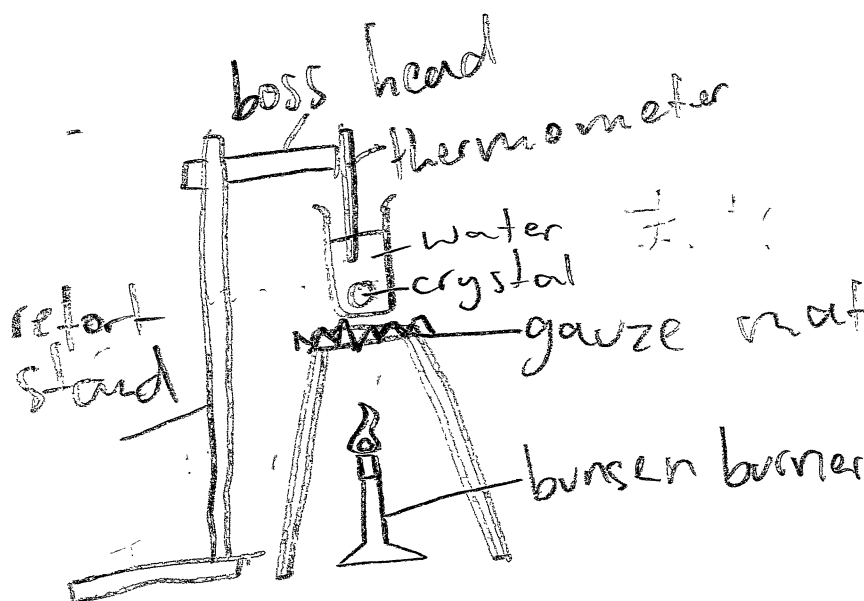 boss head
thermometer
water
crystal
retort
stand
gauze mat
bunsen burner